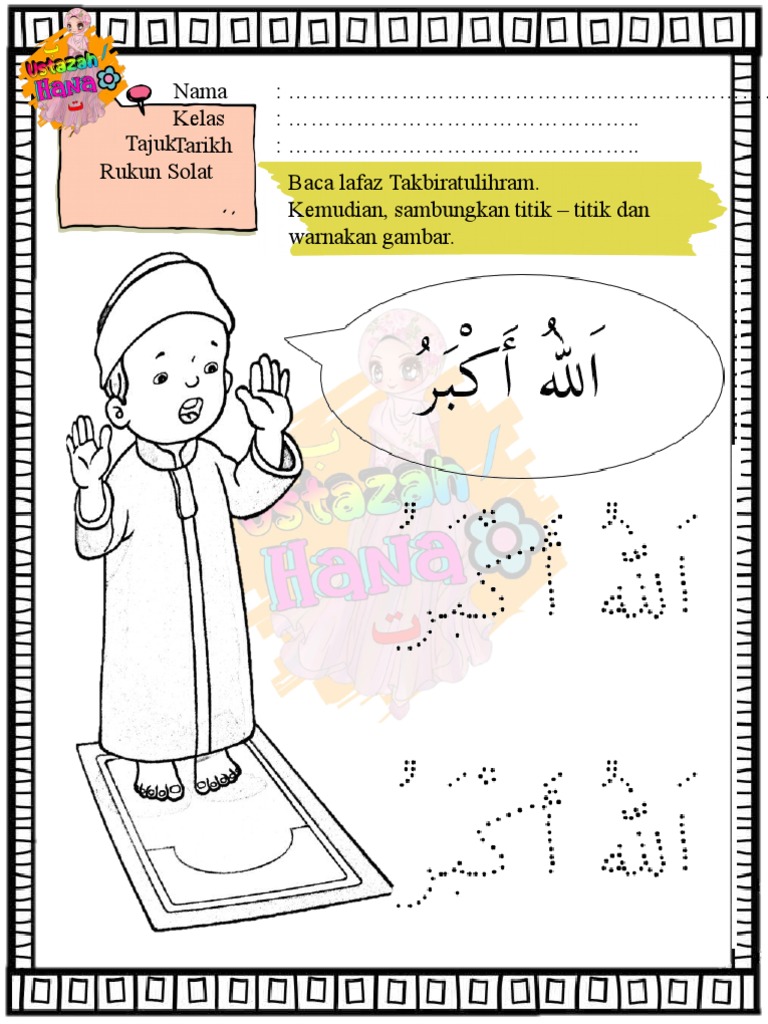 ب
Ustazah
Hana
ت
Nama : ………………………………………………………
Kelas : ……………………………………….
Tarikh : ……………………………………….
Tajuk
Rukun Solat
Baca lafaz Takbiratulihram.
Kemudian, sambungkan titik – titik dan
warnakan gambar.
اَللّٰهُ أَكْبَرُ
ب
Ustazah
Hana
ت
اَللّٰهُ أَكْبَرُ
اَللّٰهُ أَكْبَرُ